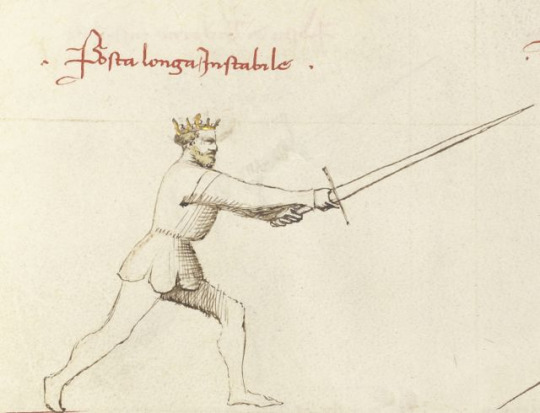 . Posta longa Instabile .